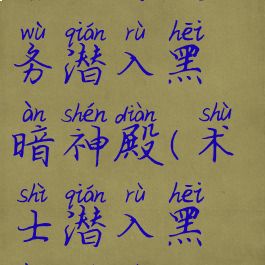 wù qián rù hēi
务潜入黑
àn shén diàn shù
暗神殿(术
shì qián rù hēi
士潜入黑